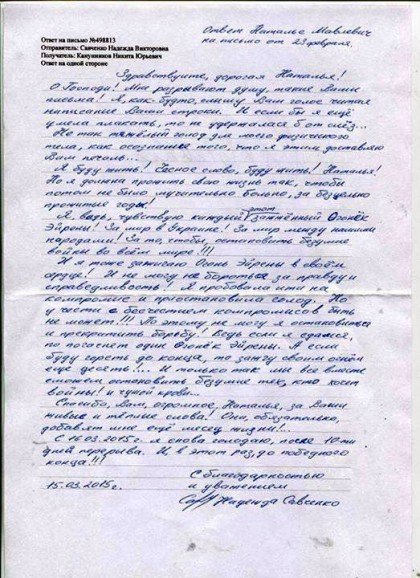 Ответ Наталье Мавлевич
на письмо от 23 февраля.
Ответ на письмо №498813
Отправитель: Савченко Надежда Викторовна
Получатель: Канунников Никита Юрьевич
Ответ на одной стороне
Здравствуйте, дорогая Наталья!
О Господи! Мне разрывают душу, такие Ваши
письма! Я, как-будто, слышу Ваш голос читая
написанные Вами строки. И если бы я ещё
умела плакать, то не удержалась б от слёз...
Не так тяжёлый голод для моего физического
тела, как осознание того, что я этим доставляю
Вам печаль...
Я буду жить! Честное слово, буду жить! Наталья!
Но я должна прожить свою жизнь так, чтобы
потом не было мучительно больно, за бесцельно
прожитые годы!
Я, ведь, чувствую каждый этот зажжённый Огонёк
Эйрены! За мир в Украине! За мир между нашими
народами! За то, чтобы, остановить безумие
войны во всём мире!!!
И я тоже зажигаю Огонь Эйрены в своём
сердце! И не могу не бороться за правду и
справедливость! Я пробовала идти на
компромис и приостановила голод. Но
у чести с бесчестием компромисов быть
не может!!! Поэтому не могу я остановиться
и прекратить борьбу! Ведь если я сдамся,
то погаснет один Огонёк Эйрены. А если
буду гореть до конца, то зажгу своим огнём
ещё десять!... И только так мы все вместе
сможем остановить безумие тех, кто хочет
войны! и чужой крови...
Спасибо, Вам, огромное, Наталья, за Ваши
живые и тёплые слова! Они, обязательно,
добавят мне ещё месяц жизни!...
С 16.03.2015г. я снова голодаю, после 10-ти
дней перерыва. И, в этот раз, до победного
конца!!!
С благодарностью
15.03.2015г. и уважением
Надежда Савченко